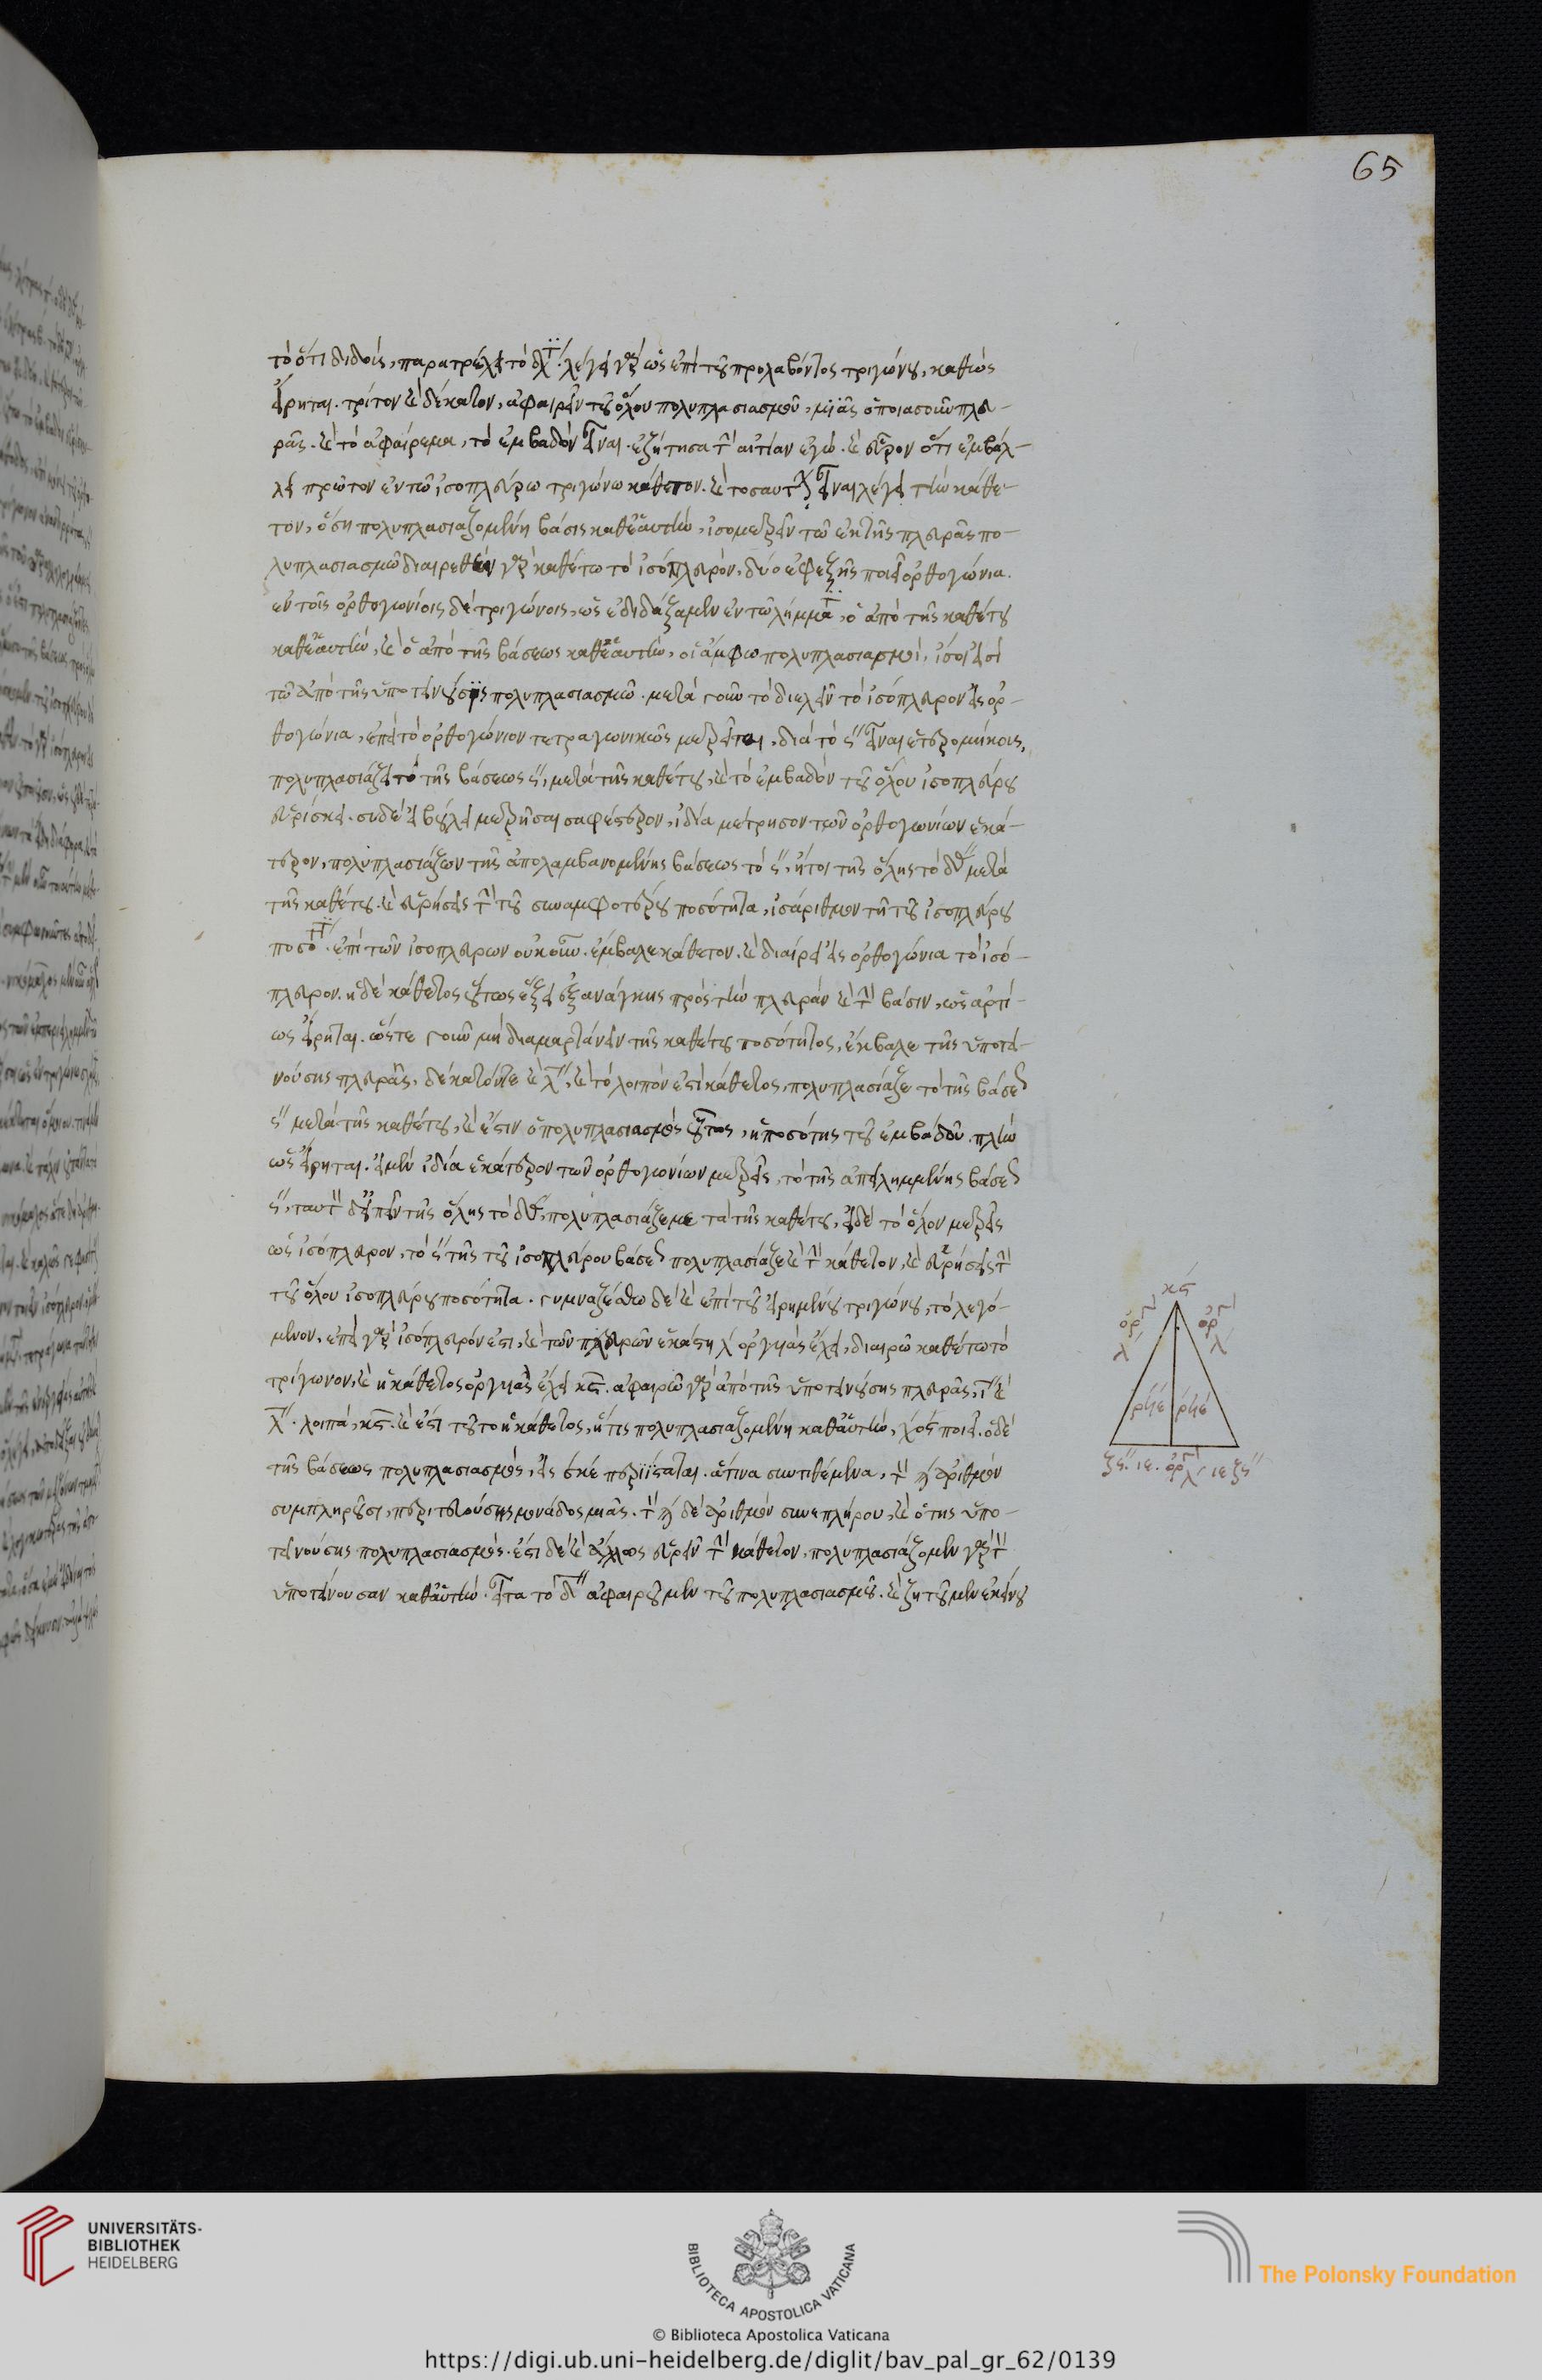 65
τὸ ὅτι διδοὺς, παρατρέχει τὸ λέγει γὰρ ὡς ἐπὶ τοῦ προλαβόντος τριγώνου, καθὼς
εἴρηται. τρίτον καὶ δέκατον, ἀφαιρεῖν τοῦ ὅλου πολυπλασιασμοῦ, μιᾶς ὁποιασοῦν πλευ-
ρᾶς. καὶ τὸ ἀφαίρεμα, τὸ ἐμβαδὸν εἶναι. ἐζήτησα τὴν αἰτίαν ἐγώ. καὶ εὗρον ὅτι ἐμβάλ-
λει πρῶτον ἐν τῶ ἰσοπλεύρω τριγώνω κάθετον. καὶ εἶναι λέγει τὴν κάθε-
τον, ὅση πολυπλασιαζομένη βάσις καθ' ἑαυτὴν, ἰσομετρεῖν τῶ ἐκ τῆς πλευρᾶς πο-
λυπλασιασμῶ διαιρεθὲν γὰρ καθέτω τὸ ἰσόπλευρον, δύο ἐφεξῆς ποιεῖ ὀρθογώνια.
ἐν τοῖς ὀρθογωνίοις δὲ τριγώνοις, ὡς ἐδιδάξαμεν ἐν τῶ λήμματι, ὁ ἀπὸ τῆς καθέτου
καθ' ἑαυτὴν, καὶ ὁ ἀπὸ τῆς βάσεως καθ' ἑαυτὴν, οἱ ἄμφω πολυπλασιασμοὶ, ἴσοι εἰσὶ
τῶ ἀπὸ τῆς ὑποτεινούσης πολυπλασιασμῶ. μετὰ γοῦν τὸ διελεῖν τὸ ἰσόπλευρον εἰς ὀρ-
θογώνια, ἐπεὶ τὸ ὀρθογώνιον τετραγωνικῶς μετρεῖται, διὰ τὸ ϛ'' εἶναι ἑτερομήκους,
πολυπλασιάζει τὸ τῆς βάσεως ϛ'', μετὰ τῆς καθέτου, καὶ τὸ ἐμβαδὸν τοῦ ὅλου ἰσοπλεύρου
εὑρίσκει. σὺ δὲ εἰ βούλει μετρῆσαι σαφέστερον, ἰδία μέτρησον τῶν ὀρθογωνίων ἑκά-
τερον, πολυπλασιάζων τῆς ἀπολαμβανομένης βάσεως τὸ ϛ'', ἤτοι τῆς ὅλης τὸ δον μετὰ
τῆς καθέτου. καὶ εὑρήσεις τὴν τοῦ συναμφοτέρου ποσότητα, ἰσάριθμον τῆ τοῦ ἰσοπλεύρου
ποσότητι. ἐπὶ τῶν ἰσοπλεύρων οὐκοῦν. ἔμβαλε κάθετον. καὶ διαίρει εἰς ὀρθογώνια τὸ ἰσό-
πλευρον. ἡ δὲ κάθετος οὕτως ἕξει ἐξ ἀνάγκης πρὸς τὴν πλευρὰν καὶ τὴν βάσιν, ὡς ἀρτί-
ως εἴρηται. ὥστε γοῦν μὴ διαμαρτάνειν τῆς καθέτου ποσότητος, ἔκβαλε τῆς ὑποτει-
νούσης πλευρᾶς, δέκατόν τε καὶ λ'', καὶ τὸ λοιπὸν ἐστὶ κάθετος, πολυπλασίαζε τὸ τῆς βάσεως
ϛ'' μετὰ τῆς καθέτου, καὶ ἔστιν ὁ πολυπλασιασμὸς οὗτος, ἡ ποσότης τοῦ ἐμβαδοῦ. πλὴν
ὡς εἴρηται. εἰ μὲν ἰδία ἑκάτερον τῶν ὀρθογωνίων μετρεῖς, τὸ τῆς ἀπειλημμένης βάσεως
ϛ'', ταυτὸν δ' εἰπεῖν τῆς ὅλης τὸ δον, πολυπλασίαζε μετὰ τῆς καθέτου, εἰ δὲ τὸ ὅλον μετρεῖς
ὡς ἰσόπλευρον, τὸ ϛ'' τῆς τοῦ ἰσοπλεύρου βάσεως πολυπλασίαζε καὶ τὴν κάθετον, καὶ εὑρήσεις τὴν
τοῦ ὅλου ἰσοπλεύρου ποσότητα. γυμναζέσθω δὲ καὶ ἐπὶ τοῦ εἰρημένου τριγώνου, τὸ λεγό-
μενον, ἐπεὶ γὰρ ἰσόπλευρόν ἐστι, καὶ τῶν πλευρῶν ἑκάστη λ ὀργυιὰς ἔχει, διαιρῶ καθέτω τὸ
τρίγωνον, καὶ ἡ κάθετος ὀργυιὰς ἔχει κϛ. ἀφαιρῶ γὰρ ἀπὸ τῆς ὑποτεινούσης πλευρᾶς, ι'' καὶ
λ''. λοιπὰ, κϛ. καὶ ἔστι τοῦτο ἡ κάθετος, ἥτις πολυπλασιαζομένη καθ' αὑτὴν, χοϛ ποιεῖ. ὁ δὲ
τῆς βάσεως πολυπλασιασμὸς, εἰς σκε περιίσταται. ἅτινα συντιθέμενα, τὸν ϡ ἀριθμὸν
συμπληροῦσι, περιττευούσης μονάδος μιᾶς. τὸν ϡ δὲ ἀριθμὸν συνεπλήρου, καὶ ὁ τῆς ὑπο-
τεινούσης πολυπλασιασμός. ἔστι δὲ καὶ ἄλλως εὑρεῖν τὴν κάθετον, πολυπλασιάζομεν γὰρ τὴν
ὑποτείνουσαν καθ' αὑτὴν. εἶτα τὸ δ'' ἀφαιροῦμεν τοῦ πολυπλασιασμοῦ. καὶ ζητοῦμεν ἐκείνου
κϛ
ὀργ λ
ὀργ λ
ρϟε ρϟε
ζϛ''. ιε. ὀργ λ ιε ζϛ''
UNIVERSITÄTS-
BIBLIOTHEK
HEIDELBERG
BIBLIOTECA APOSTOLICA VATICANA
The Polonsky Foundation
© Biblioteca Apostolica Vaticana
https://digi.ub.uni-heidelberg.de/diglit/bav_pal_gr_62/0139